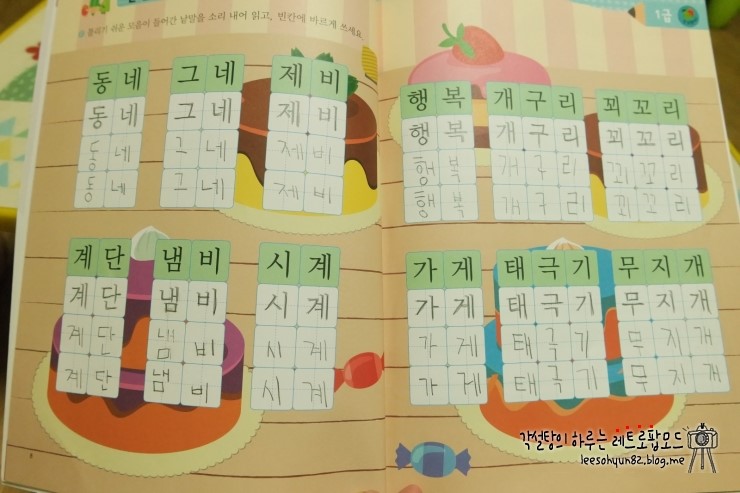 헷갈리기 쉬운 모음이 들어간 낱말을 소리 내어 읽고, 빈칸에 바르게 쓰세요.
1급
동네 그네 제비
동네 그네 제비
동네 그네 제비
동네 그네 제비
계단 냄비 시계
계단 냄비 시계
계단 냄비 시계
계단 냄비 시계
8
행복 개구리 꾀꼬리
행복 개구리 꾀꼬리
행복 개구리 꾀꼬리
행복 개구리 꾀꼬리
가게 태극기 무지개
가게 태극기 무지개
가게 태극기 무지개
가게 태극기 무지개
각설탕의 하루는 레트로팝모드
leesohyun82.blog.me